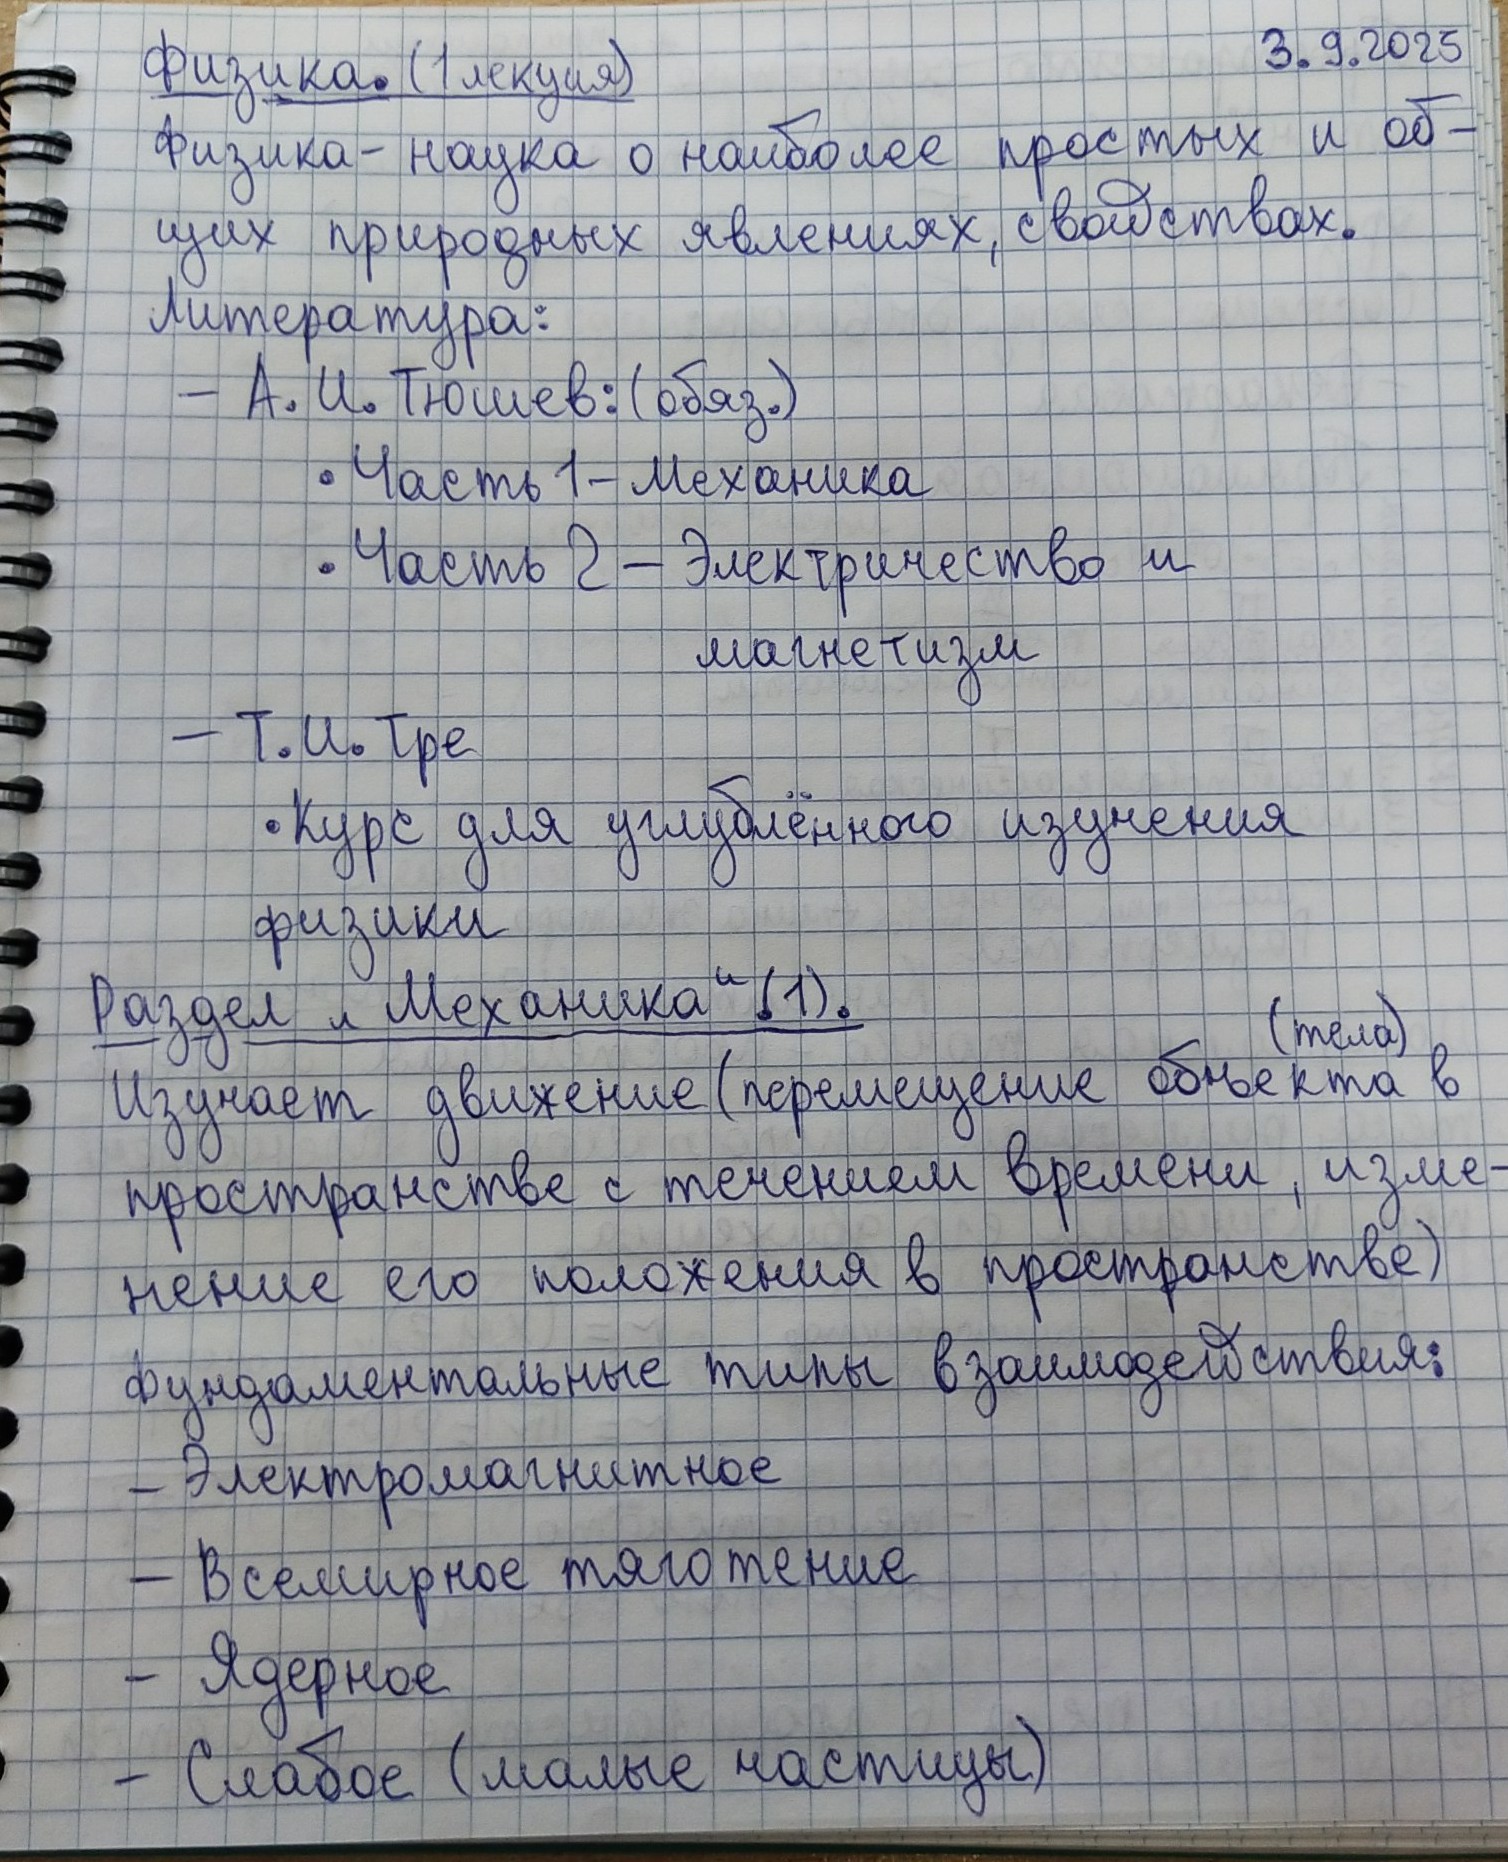 Физика. (1 лекция)
3.9.2025
Физика - наука о наиболее простых и об-
щих природных явлениях, свойствах.
Литература:
- А. И. Тюшев: (обяз.)
• Часть 1 - Механика
• Часть 2 - Электричество и
магнетизм
- Т. И. Тре
• Курс для углублённого изучения
физики
Раздел „Механика“ (1).
(тела)
Изучает движение (перемещение обньекта в
пространстве с течением времени, изме-
нение его положения в пространстве)
Фундаментальные типы взаимодействия:
- Электромагнитное
- Всемирное тяготение
- Ядерное
- Слабое (малые частицы)